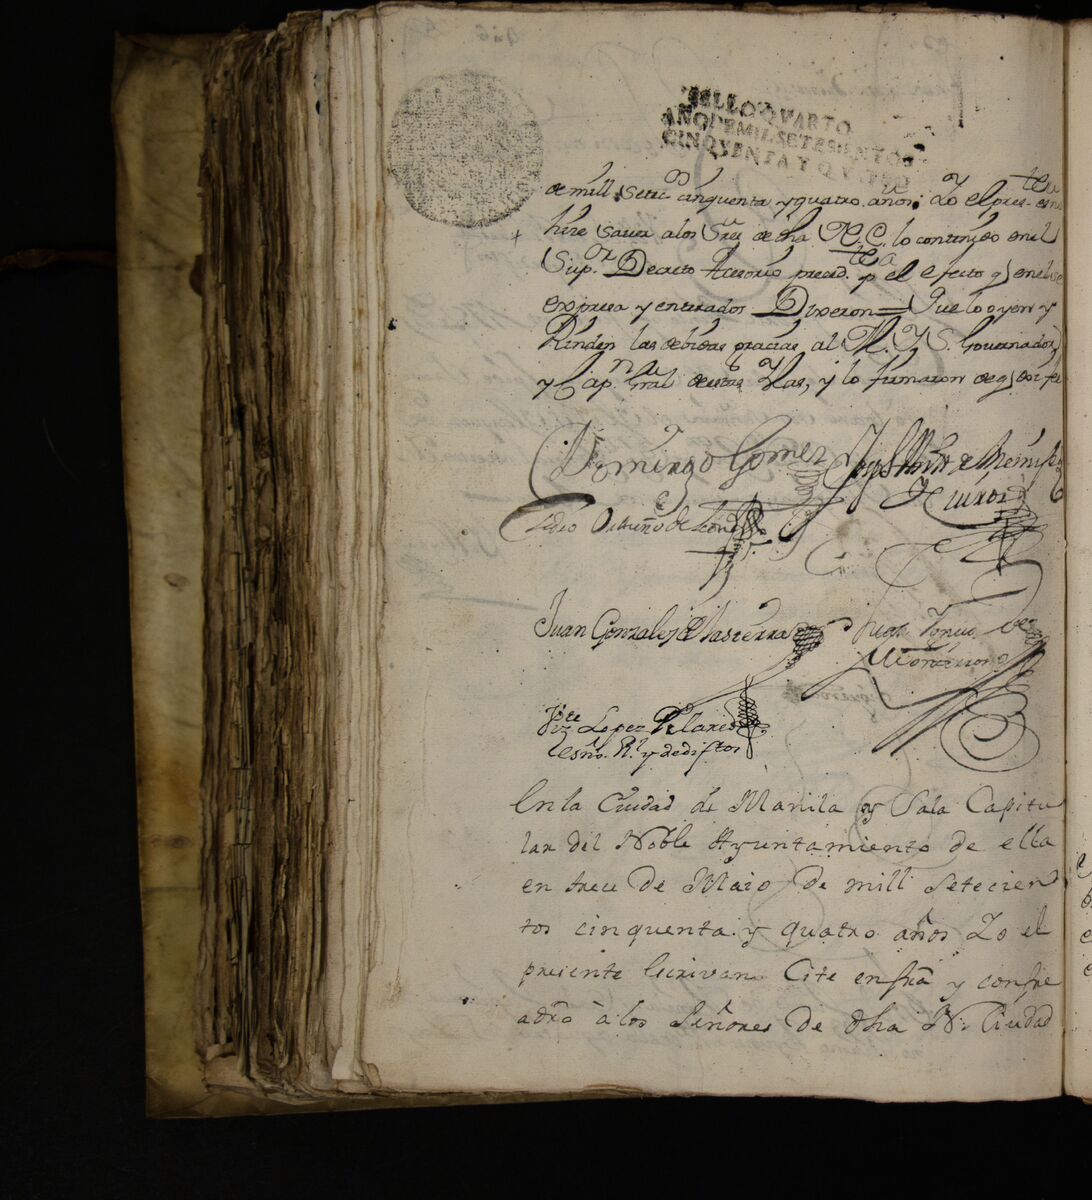 SELLO QVARTO
AÑO DE MIL SETESIENTOS
CINQVENTA Y QVATRO
de mill setecos cinquenta y quatro años; Yo el presте esno
hize saver a los Sres de dha N. C. lo contenido en el
Supor Decreto Acesorio precedte pa el efecto q en el se
expresa y enterados Dixeron = Que lo oyen y
Rinden las debidas gracias al M. Y. S. Governador
y Capn Gral de estas Yslas, y lo firmaron de q doi fe
Domingo Gomez
Pedro Ostuño de Leon
Juan Gonzalez de Lasierra
Juan
Lopez Perlares
esno Rl y de diftos
En la Ciudad de Manila y Sala Capitu
lar del Noble Ayuntamiento de ella
en trece de Maio de mill setecien
tos cinquenta y quatro años Yo el
presente Escrivano Cite en fra y confre
a dro à los Señores de dha N. Ciudad